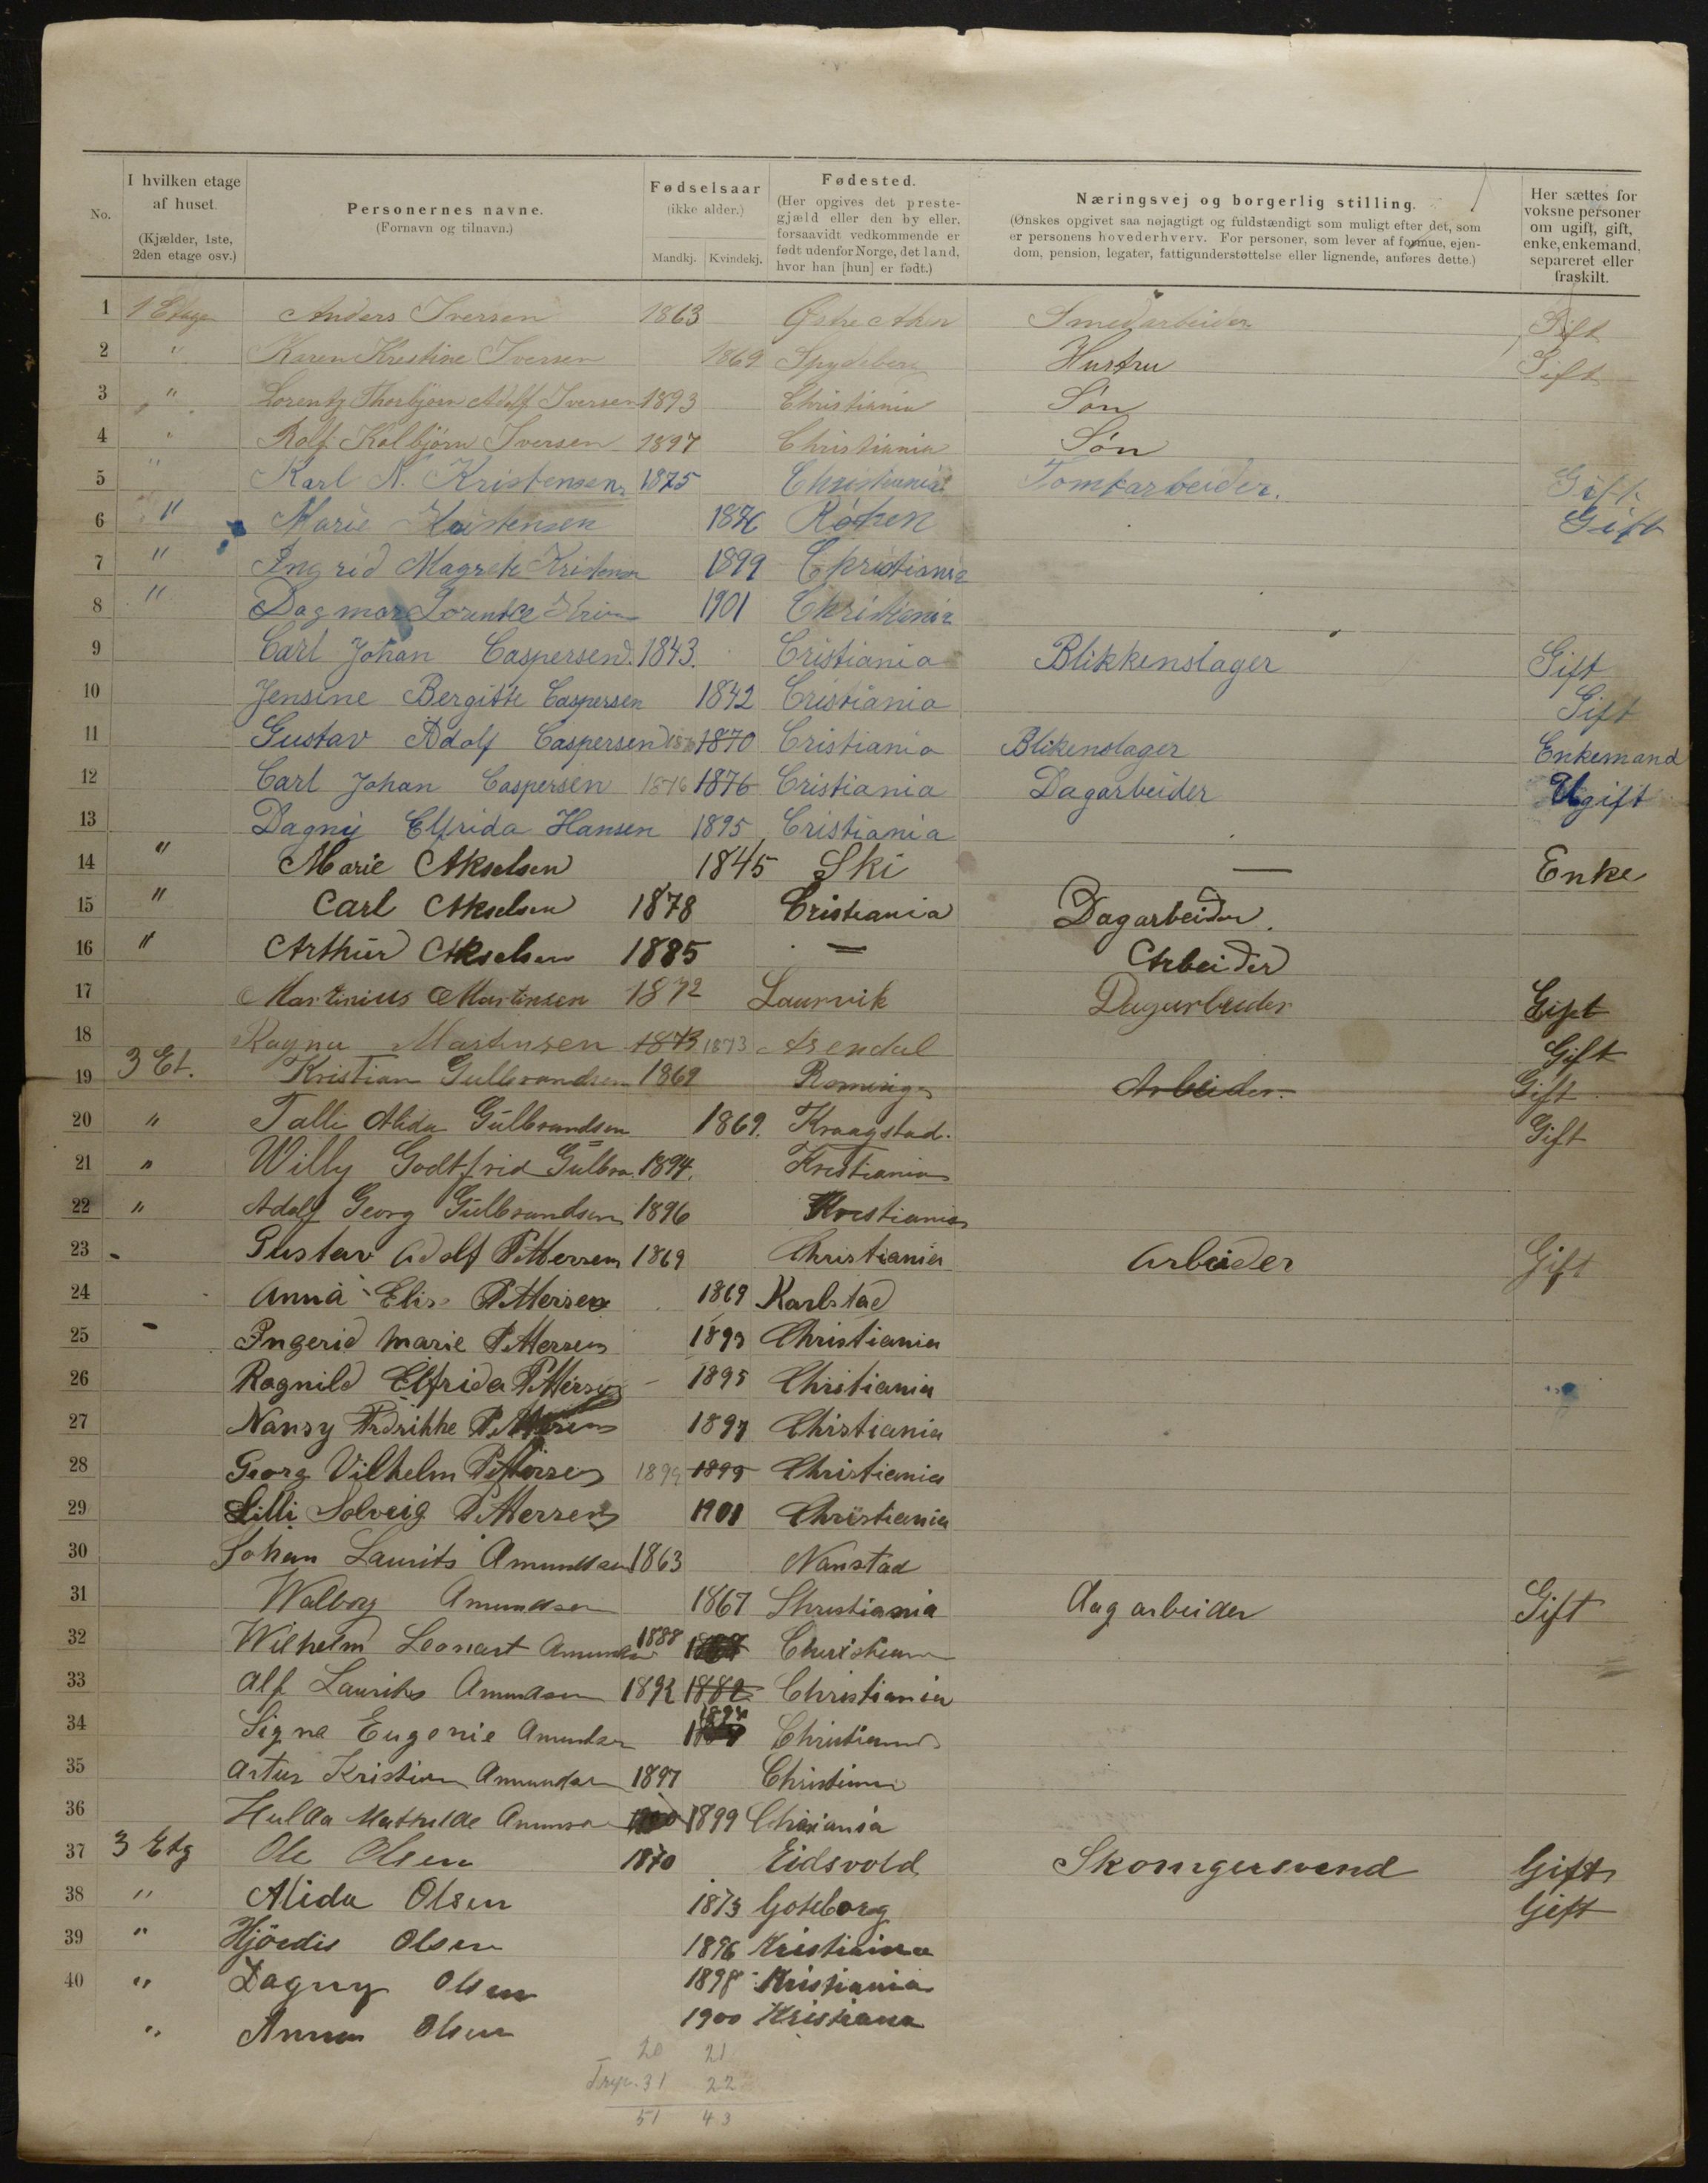 No.
I hvilken etage af huset. (Kjælder, 1ste, 2den etage osv.)
Personernes navne. (Fornavn og tilnavn.)
Fødselsaar (ikke alder.) Mandkj. Kvindekj.
Fødested. (Her opgives det prestegjæld eller den by eller, forsaavidt vedkommende er født udenfor Norge, det land, hvor han [hun] er født.)
Næringsvej og borgerlig stilling. (Ønskes opgivet saa nøjagtigt og fuldstændigt som muligt efter det, som er personens hovederhverv. For personer, som lever af formue, ejendom, pension, legater, fattigunderstøttelse eller lignende, anføres dette.)
Her sættes for voksne personer om ugift, gift, enke, enkemand, separeret eller fraskilt.
1 1 Etage Anders Iversen 1863 Østre Aker Smedarbeider Gift
2 " Karen Kristine Iversen 1869 Spydeberg Hustru Gift
3 " Lorentz Thorbjørn Adolf Iversen 1893 Christiania Søn
4 " Rolf Kolbjörn Iversen 1897 Christiania Søn
5 " Karl N. Kristensen 1875 Christiania Tomtarbeider. Gift
6 " Marie Kristensen 1876 Röken Gift
7 " Ingrid Magrete 1899 Christiania
8 " Dagmar 1901 Christiania
9 Carl Johan Caspersen. 1843. Cristiania Blikkenslager Gift
10 Jensine Bergitte Caspersen 1842 Cristiania Gift
11 Gustav Adolf Caspersen 1870 1870 Cristiania Blikenslager Enkemand
12 Carl Johan Caspersen 1876 1876 Cristiania Dagarbeider Ugift
13 Dagny Elfrida Hansen 1895 Cristiania
14 " Marie Akselsen 1845 Ski — Enke
15 " Carl Akselsen 1878 Cristiania Dagarbeider.
16 " Arthur Akselsen 1885 — Arbeider
17 Martinius Martinsen 1872 Laurvik Dagarbeider Gift
18 Ragna Martinsen 1873 1873 Arendal Gift
19 3 Et. Kristian Gulbrandsen 1869 Arbeider. Gift
20 " Talli Alida Gulbrandsen 1869. Kraagstad. Gift
21 " Willy Godtfrid Gulbra 1894. Kristiania
22 " Adolf Georg Gulbrandsen 1896 Kristiania
23 Gustav Adolf Pettersen 1869 Christiania Arbeider Gift
24 Anna Elis Pettersen 1869 Karlstad
25 Ingerid Marie Pettersen 1893 Christiania
26 Ragnild Elfrida Pettersen 1895 Christiania
27 Nansy Fredrikke Pettersen 1897 Christiania
28 Georg Vilhelm Pettersen 1899 1899 Christiania
29 Lilli Solveig Pettersen 1901 Christiania
30 Johan Laurits Amundsen 1863 Nanstad
31 Walborg Amundsen 1867 Christiania Dagarbeider Gift
32 Wilhelm Leonart Amundsen 1888 Christiania
33 Alf Laurits Amundsen 1892 1882 Christiania
34 Signe Eugenie Amundsen 1894 Christiania
35 Artur Kristian Amundsen 1897 Christiania
36 Hulda Mathilde 1899 Chriania
37 3 Etg Ole Olsen 1870 Eidsvold Skomgersvend Gift
38 " Alida Olsen 1873 Goteborg Gift
39 " Hjördis Olsen 1896 Kristiania
40 " Dagny Olsen 1898 Kristiania
" Anna Olsen 1900 Kristiana
20 21
31 22
51 43